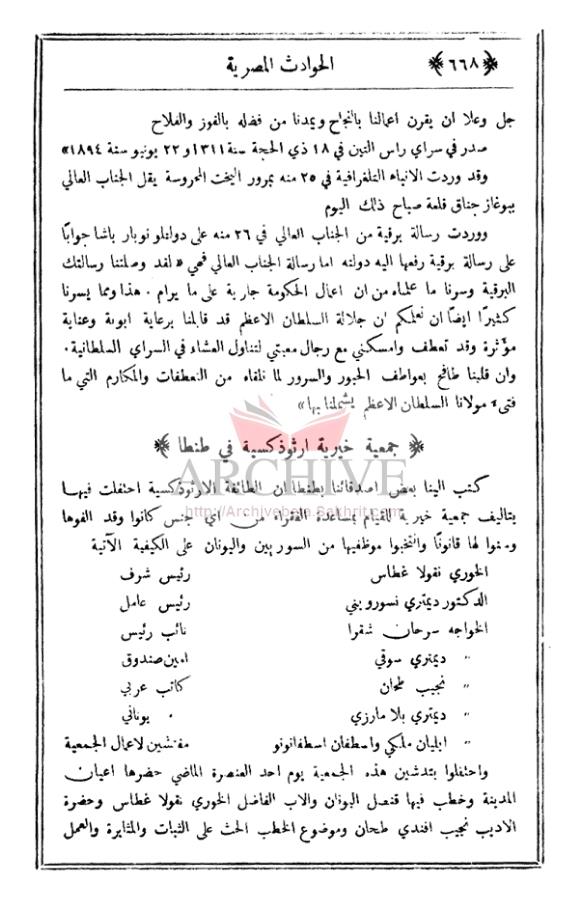 ﴿٦٦٨﴾ الحوادث المصرية
جل وعلا ان يقرن اعمالنا بالنجاح ويمدنا من فضله بالفوز والفلاح
صدر في سراي راس التين في ١٨ ذي الحجة سنة ١٣١١ و ٢٢ يونيو سنة ١٨٩٤»
وقد وردت الانباء التلغرافية في ٢٥ منه بمرور اليخت المحروسة يقل الجناب العالي
ببوغاز جناق قلعة صباح ذلك اليوم
ووردت رسالة برقية من الجناب العالي في ٢٦ منه على دولتلو نوبار باشا جوابًا
على رسالة برقية رفعها اليه دولته اما رسالة الجناب العالي فهي « لقد وصلتنا رسالتك
البرقية وسرنا ما علمناه من ان اعمال الحكومة جارية على ما يرام . هذا ومما يسرنا
كثيرًا ايضًا ان نعلمكم ان جلالة السلطان الاعظم قد قابلنا برعاية ابوية وعناية
مؤثرة وقد تعطف وامسكني مع رجال معيتي لتناول العشاء في السراي السلطانية .
وان قلبنا طافح بعواطف الحبور والسرور لما نلقاه من التعطفات والمكارم التي ما
فتىء مولانا السلطان الاعظم يشملنا بها »
﴿ جمعية خيرية ارثوذكسية في طنطا ﴾
ARCHIVE
كتب الينا بعض اصدقائنا بطنطا ان الطائفة الارثوذكسية احتفلت فيها
http://Archivebeta.Sakhrit.com
بتاليف جمعية خيرية للقيام بمساعدة الفقراء من اي جنس كانوا وقد الفوها
وسنوا لها قانونًا وانتخبوا موظفيها من السوريين واليونان على الكيفية الآتية
الخوري نقولا غطاس رئيس شرف
الدكتور ديمتري نسوروبني رئيس عامل
الخواجه سرحان شقرا نائب رئيس
" ديمتري سوقي امين صندوق
" نجيب طحان كاتب عربي
" ديمتري بلا مارزي " يوناني
" ايليان ملكي واسطفان اسطفانونو مفتشين لاعمال الجمعية
واحتفلوا بتدشين هذه الجمعية يوم احد العنصرة الماضي حضرها اعيان
المدينة وخطب فيها قنصل اليونان والاب الفاضل الخوري نقولا غطاس وحضرة
الاديب نجيب افندي طحان وموضوع الخطب الحث على الثبات والمثابرة والعمل